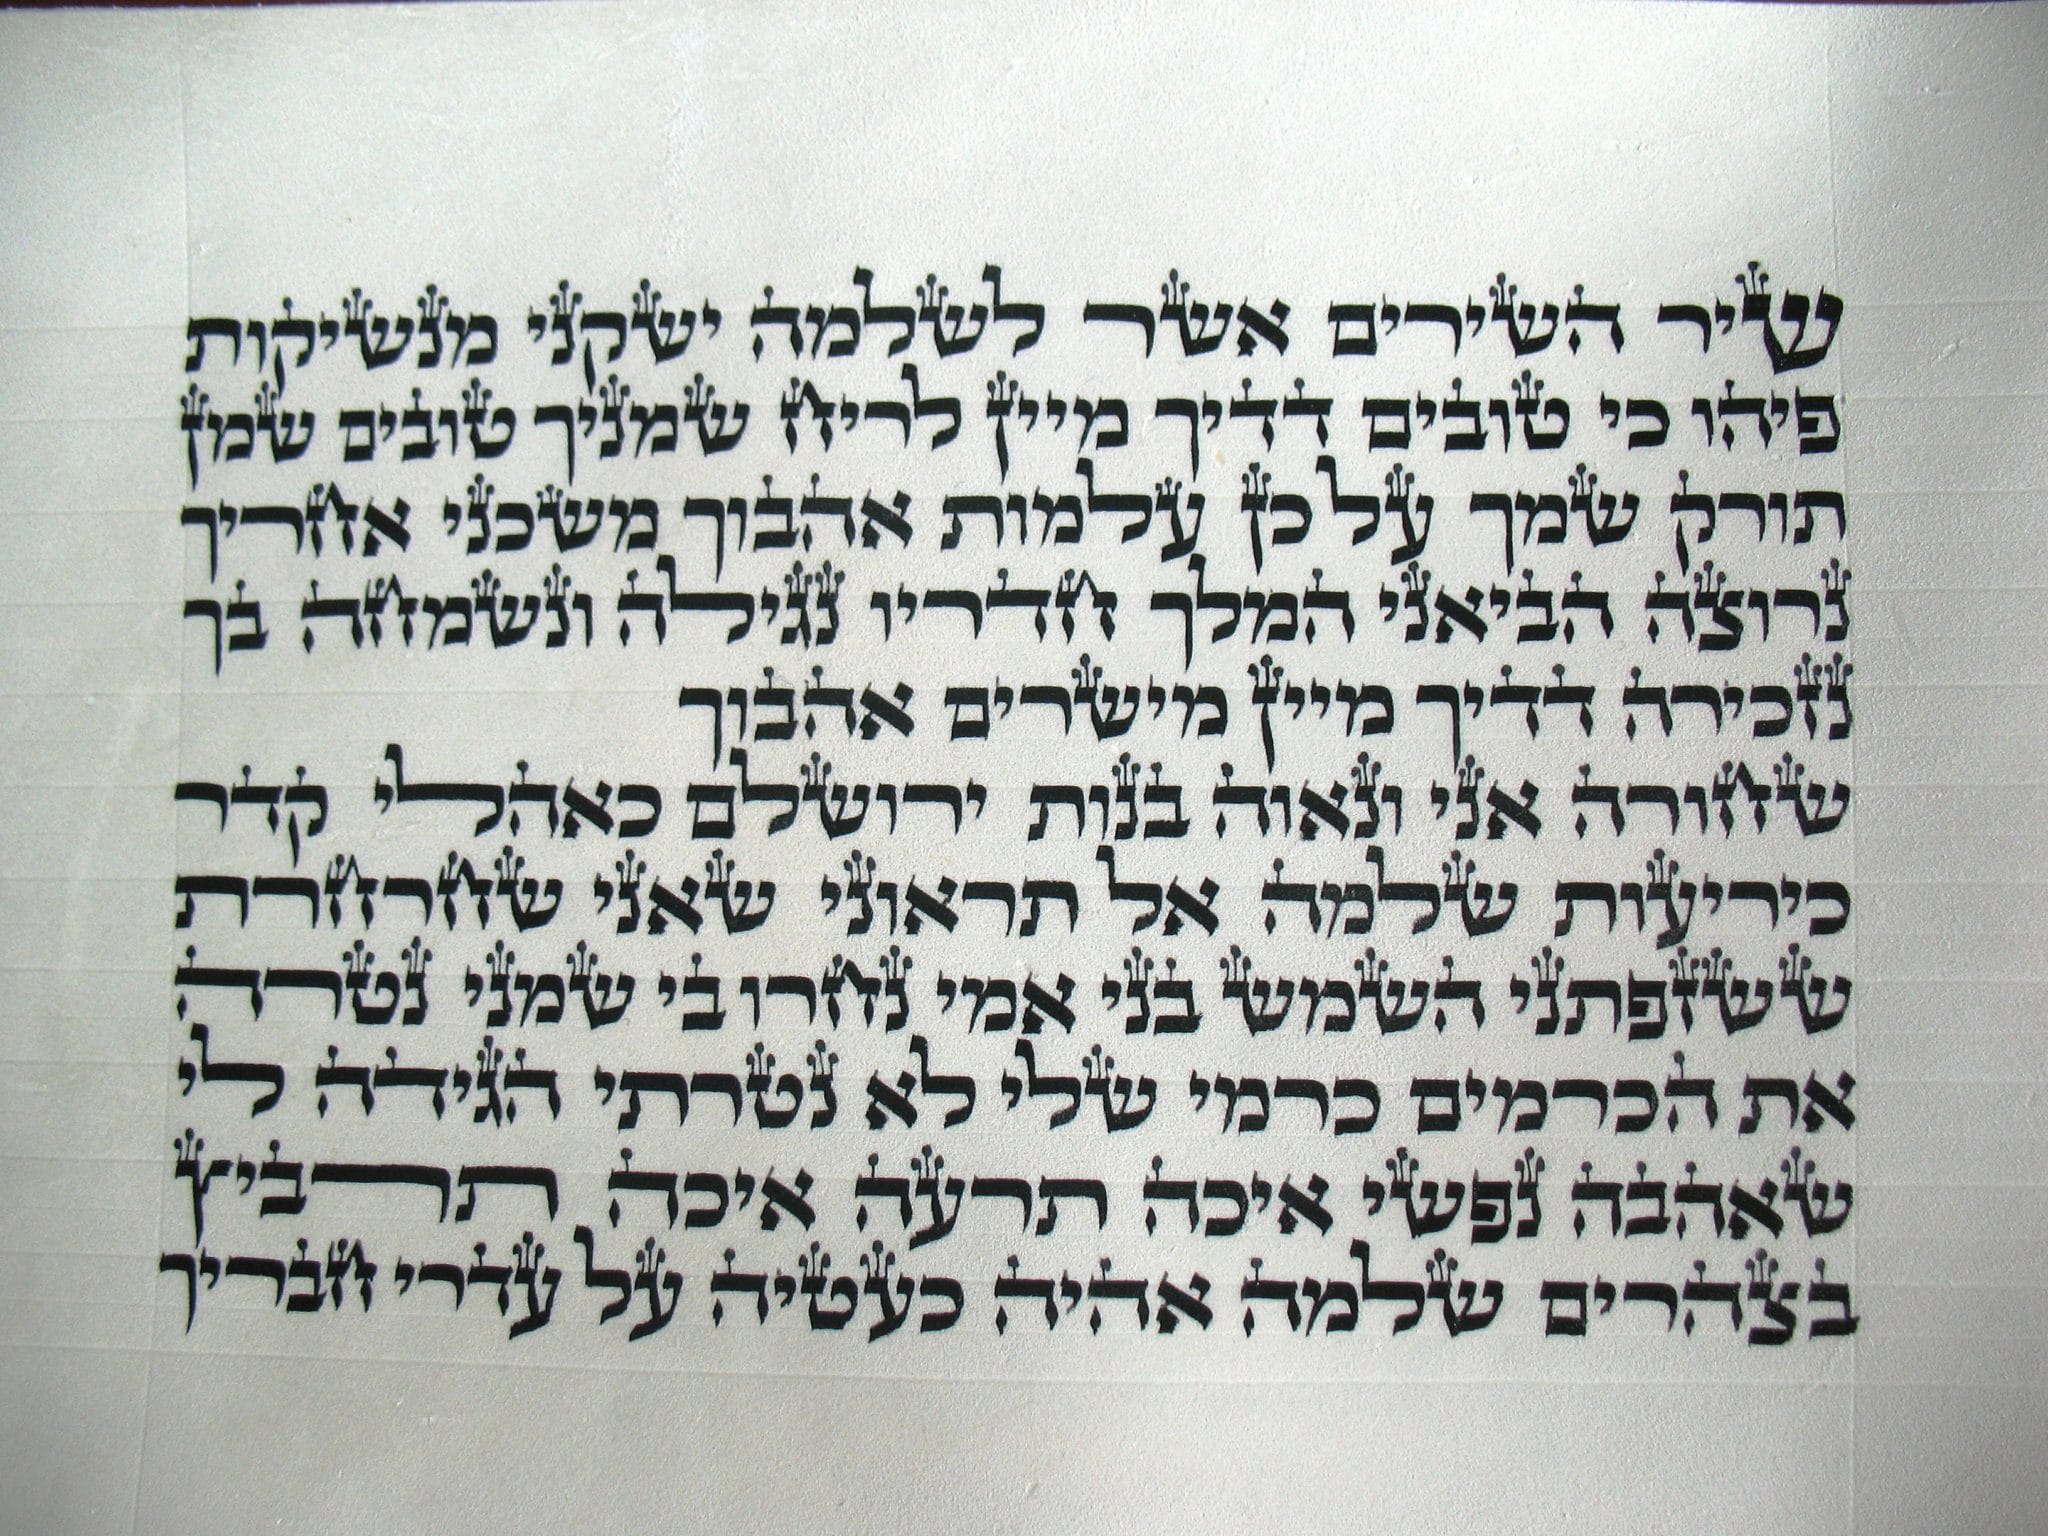 שיר השירים אשר לשלמה ישקני מנשיקות
פיהו כי טובים דדיך מיין לריח שמניך טובים שמן
תורק שמך על כן עלמות אהבוך משכני אחריך
נרוצה הביאני המלך חדריו נגילה ונשמחה בך
נזכירה דדיך מיין מישרים אהבוך
שחורה אני ונאוה בנות ירושלם כאהלי קדר
כיריעות שלמה אל תראוני שאני שחרחרת
ששזפתני השמש בני אמי נחרו בי שמני נטרה
את הכרמים כרמי שלי לא נטרתי הגידה לי
שאהבה נפשי איכה תרעה איכה תרביץ
בצהרים שלמה אהיה כעטיה על עדרי חבריך